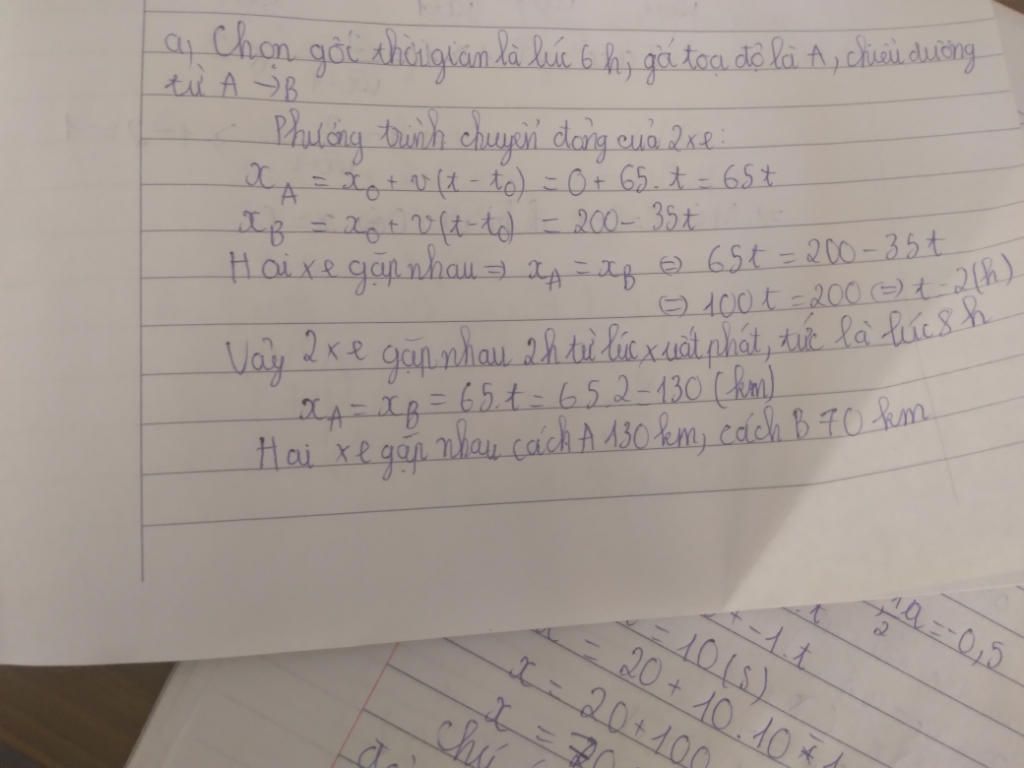 a, Chọn gốc thời gian là lúc 6 h; gố toạ độ là A, chiều dương
từ A → B
Phương trình chuyển động của 2 xe:
x_A = x_0 + v(t - t_0) = 0 + 65.t = 65t
x_B = x_0 + v(t-t_0) = 200 - 35t
Hai xe gặp nhau ⇒ x_A = x_B ⇔ 65t = 200 - 35t
⇔ 100t = 200 ⇔ t = 2(h)
Vậy 2 xe gặp nhau 2h từ lúc xuất phát, tức là lúc 8 h
x_A = x_B = 65.t = 65.2 = 130 (km)
Hai xe gặp nhau cách A 130 km, cách B 70 km
= 10(s)
+ -1.t
= 20 + 10.10
x = 20 + 100
x = 70
chú
a = -0,5
2